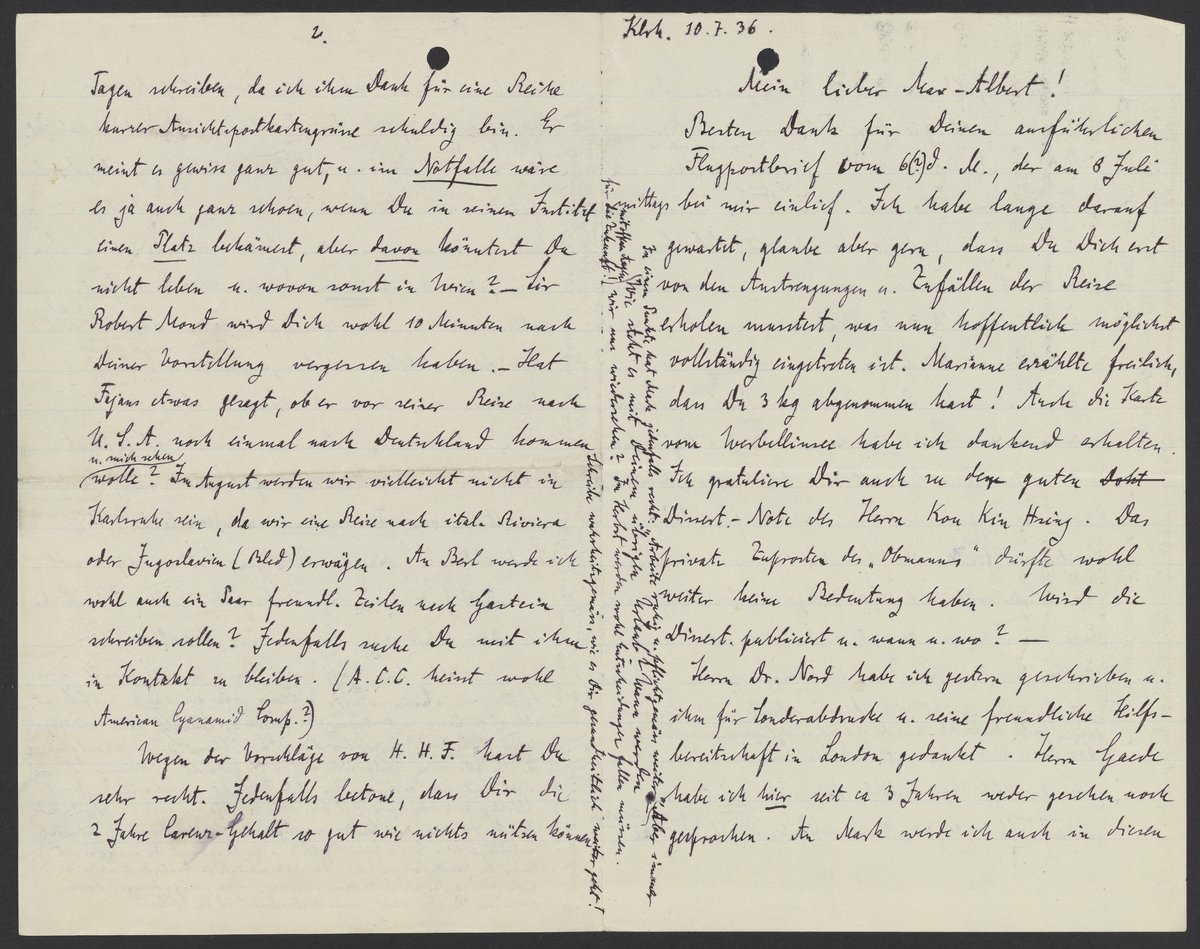 Klrh. 10.7.36.
Mein lieber Max-Albert!
Besten Dank für Deinen ausführlichen
Flugpostbrief vom 6(?) d. M., der am 8 Juli
mittags bei mir einlief. Ich habe lange darauf
gewartet, glaube aber gern, dass Du Dich erst
von den Anstrengungen u. Zufällen der Reise
erholen musstest, was nun hoffentlich möglichst
vollständig eingetreten ist. Marianne erzählte freilich,
dass Du 3 kg abgenommen hast! Auch die Karte
vom Werbellinsee habe ich dankend erhalten.
Ich gratuliere Dir auch zu dem guten Dokt
Dissert.-Note des Herrn Kou Kin Hsing. Das
private Zuprosten des „Obmanns" dürfte wohl
weiter keine Bedeutung haben. Wird die
Dissert. publiciert u. wann u. wo? —
Herrn Dr. Nord habe ich gestern geschrieben u.
ihm für Sonderabdrucke u. seine freundliche Hilfs-
bereitschaft in London gedankt. Herrn Gaede
habe ich hier seit ca 3 Jahren weder gesehen noch
gesprochen. An Mark werde ich auch in diesen
2.
Tagen schreiben, da ich ihm Dank für eine Reihe
kurzer Ansichtspostkartengrüsse schuldig bin. Er
meint es gewiss ganz gut, u. im Notfalle wäre
es ja auch ganz schoen, wenn Du in seinem Institut
einen Platz bekämest, aber davon könntest Du
nicht leben u. wovon sonst in Wien? — Sir
Robert Mond wird Dich wohl 10 Minuten nach
Deiner Vorstellung vergessen haben. — Hat
Fajans etwas gesagt, ob er vor seiner Reise nach
U.S.A. noch einmal nach Deutschland kommen
u. mich sehen
wolle? Im August werden wir vielleicht nicht in
Karlsruhe sein, da wir eine Reise nach ital. Riviera
oder Jugoslavien (Bled) erwägen. An Berl werde ich
wohl auch ein Paar freundl. Zeilen nach Gastein
schreiben sollen? Jedenfalls suche Du mit ihm
in Kontakt zu bleiben. (A.C.C. heisst wohl
American Cyanamid Comp.?)
Wegen der Vorschläge von H. H. F. hast Du
sehr recht. Jedenfalls betone, dass Dir die
2 Jahre Carenz-Gehalt so gut wie nichts nützen können
In einem Punkte hat Mark jedenfalls recht: Arbeite ruhig u. pflichtgemäss weiter. „Aber immer
Wie steht es mit Deinem übrigen Urlaub? Wann werden
wir uns wiedersehen? Im Herbst werden wohl Entscheidungen fallen müssen.
für die Zukunft!)
Schreibe wahrheitsgemäss, wie es Dir gesundheitlich weiter geht!